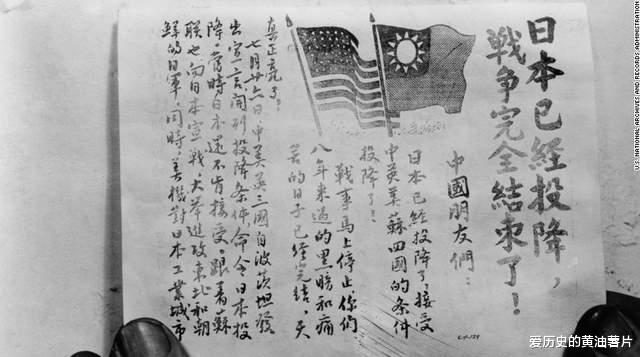 日本已經投降，
戦争完全結束了！
中國朋友們：
日本已經投降了，接受
中英美蘇四國的條件
投降了！
戰事馬上停止你們
八年來過的黑暗和痛
苦的日子已經完結，天
真正亮了！
七月廿六日中美英三國自波茨坦發
出宣言開列投降條件命令日本投
降。當時日本還不肯接受。跟着蘇
聯也向日本宣戰，大舉進攻東北和朝
鮮的日軍，同時，美機對日本工業城市
U.S. NATIONAL ARCHIVES AND RECORDS ADMINISTRATION
爱历史的黄油薯片